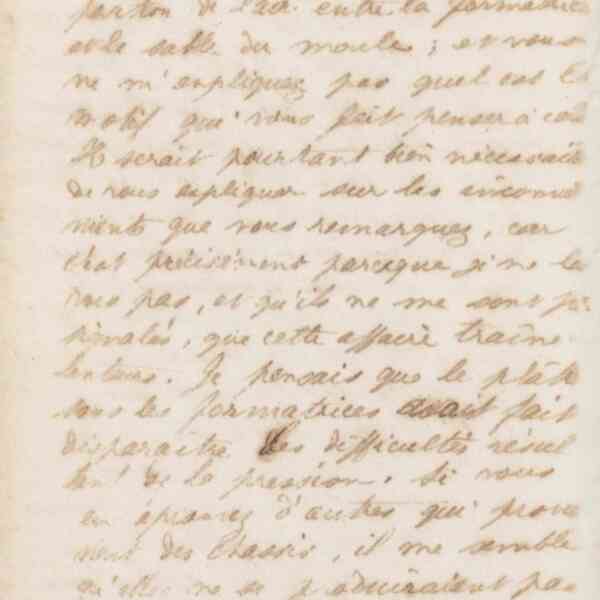 de l'air entre la formatrice
et le sable du moule ; et vous
ne m'expliquez pas quel est le
motif qui vous fait penser à cela
Il serait pourtant bien nécessaire
de vous expliquer sur les inconvé
nients que vous remarquez, car
c'est précisément parceque je ne les
vois pas, et qu'ils ne me sont pas
signalés, que cette affaire traîne
Je pensais que le plâtre
sous les formatrices avait fait
disparaître les difficultés résul
tant de la pression. Si vous
en éprouvez d'autres qui provien
nent des chassis, il me semble
qu'elles ne se produiraient pas